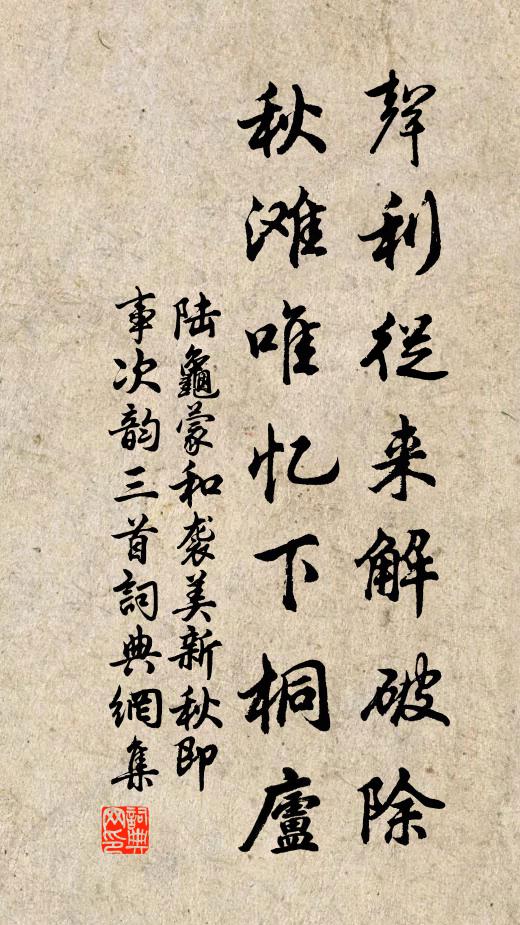 聲利從来解破除
秋滩唯忆下桐廬
陆龜蒙和袭美新秋即
事次韵三首詞典網集
詞典
网印